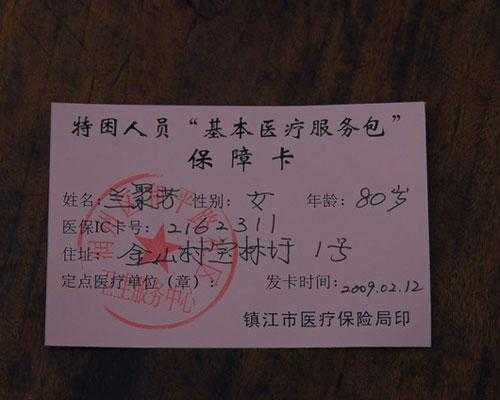 特困人员“基本医疗服务包”
保障卡
姓名：兰聚芳 性别：女 年龄：80岁
医保IC卡号：2162311
住址：金山村宝林圩 1号
定点医疗单位（章）： 发卡时间：2009.02.12
镇江市医疗保险局印
卫生服务中心